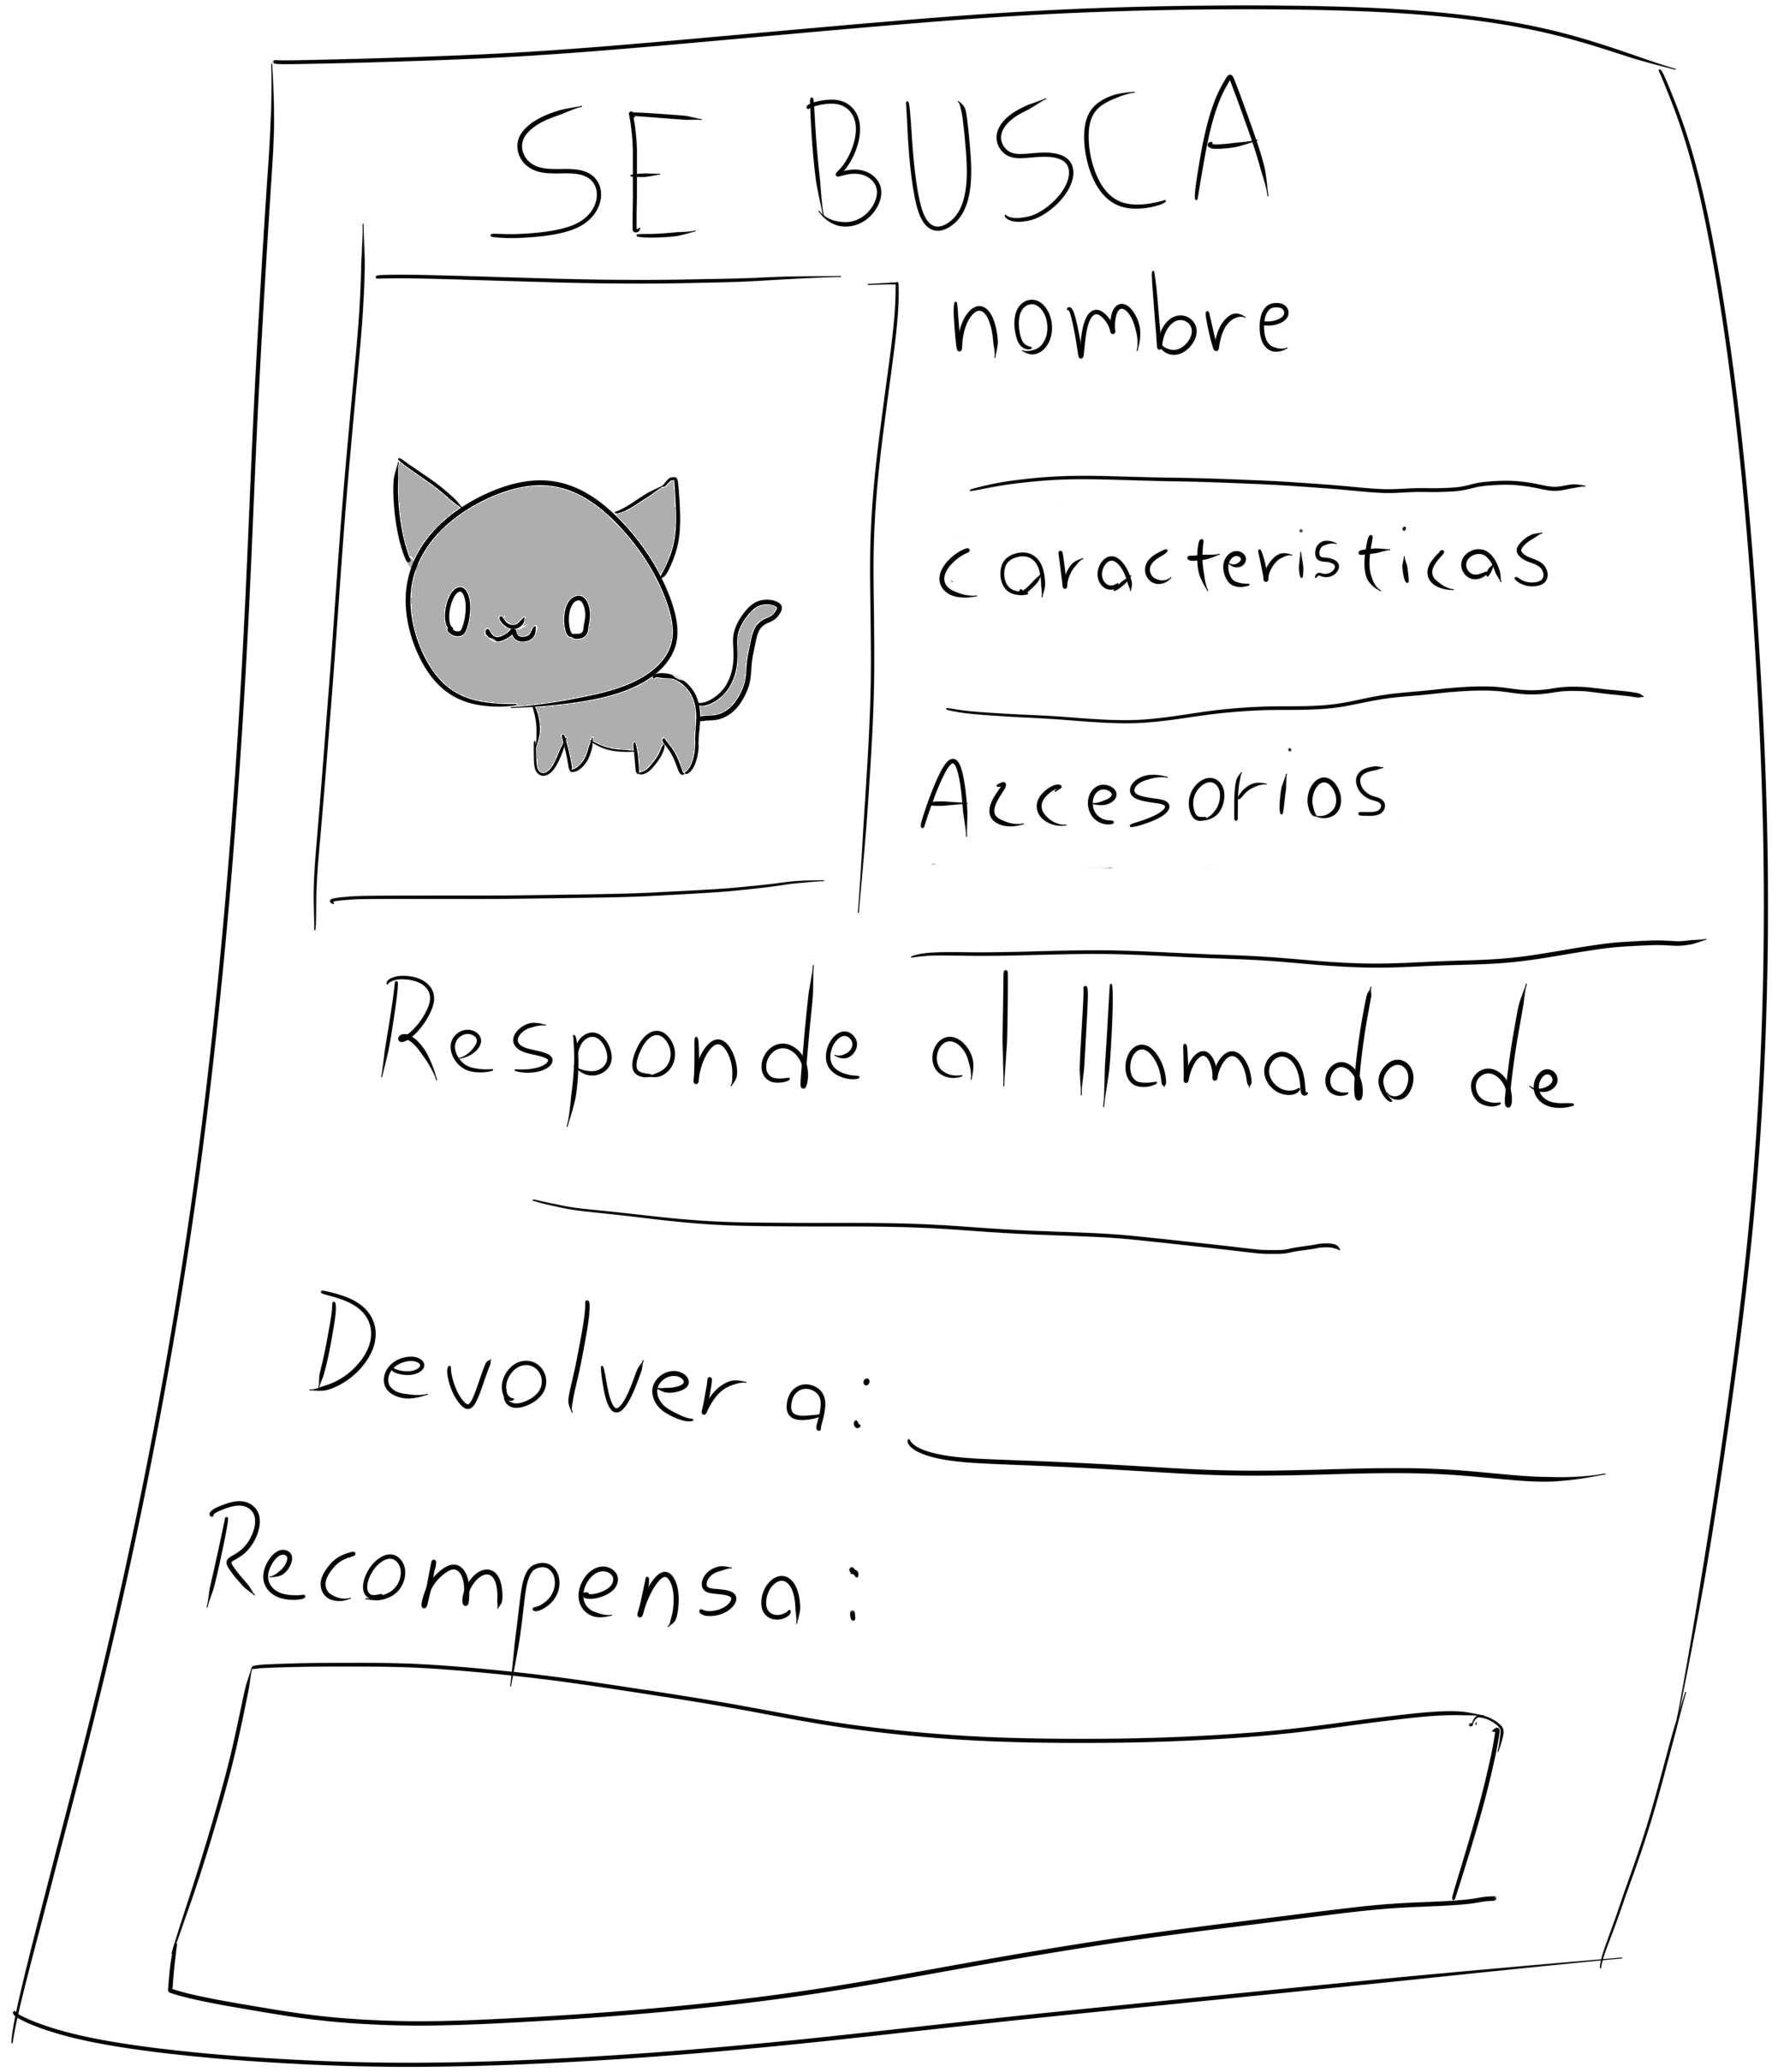 SE BUSCA
nombre
características
Accesorios
Responde al llamado de
Devolver a:
Recompensa: